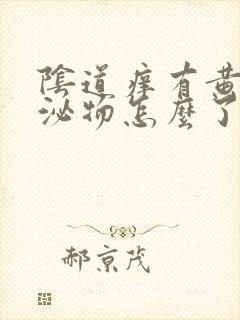 陰道痒有黃
泌物怎麼了
郝京茂